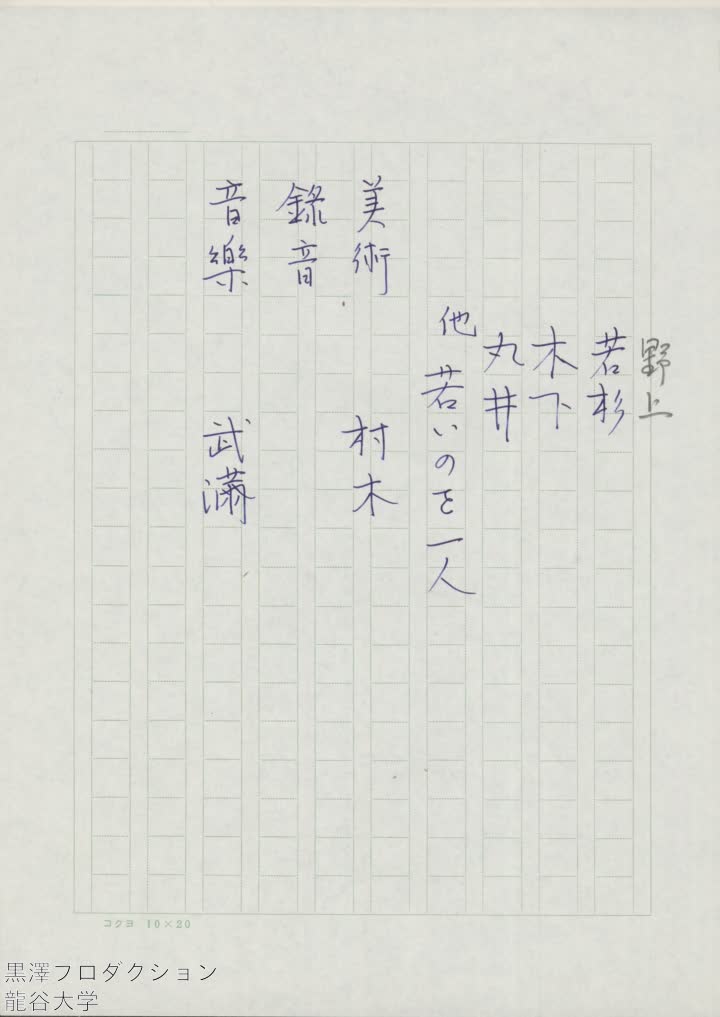 野上
若杉
木下
丸井
他 若いのを一人
美術 村木
錄音
音樂 武満
コクヨ 10×20
黒澤フロダクション
龍谷大学